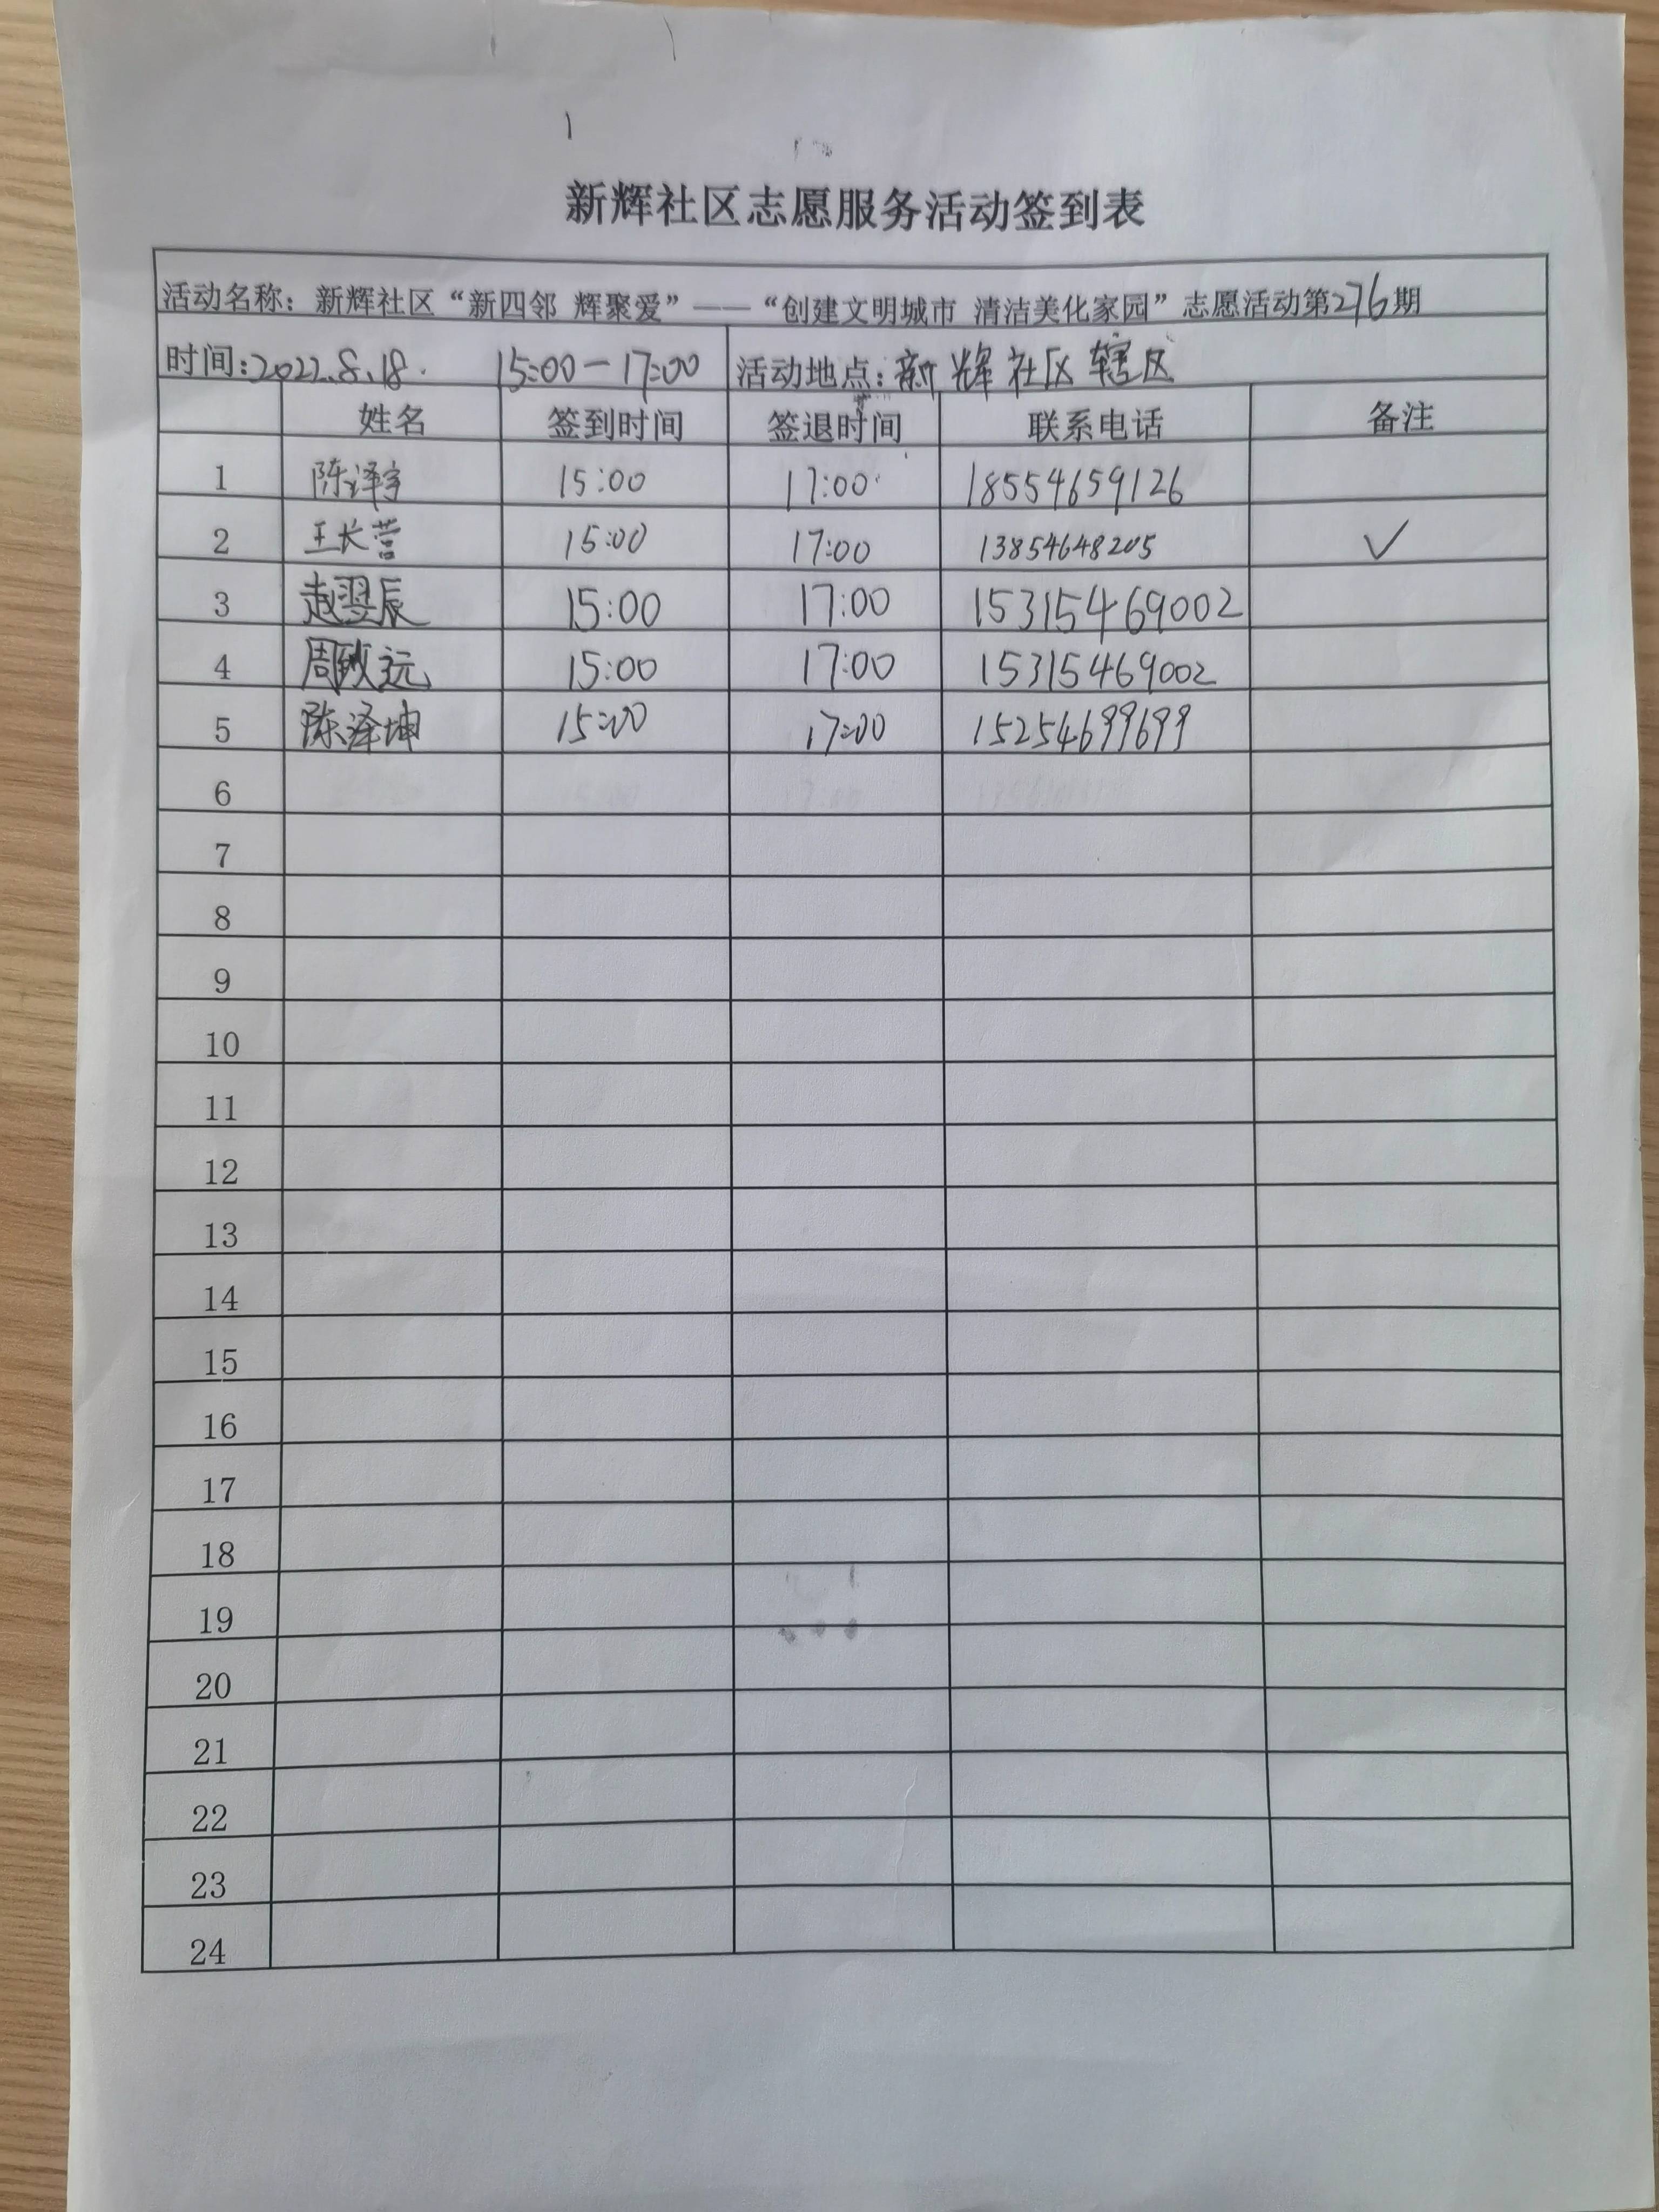 新辉社区志愿服务活动签到表
活动名称：新辉社区“新四邻 辉聚爱”——“创建文明城市 清洁美化家园”志愿活动第276期
时间:2022.8.18. 15:00-17:00 活动地点:新辉社区辖区
姓名 签到时间 签退时间 联系电话 备注
1 陈泽宇 15:00 17:00 18554659126
2 王长营 15:00 17:00 13854648205 ✓
3 赵翌辰 15:00 17:00 15315469002
4 周致远 15:00 17:00 15315469002
5 陈泽坤 15:00 17:00 15254699699
6
7
8
9
10
11
12
13
14
15
16
17
18
19
20
21
22
23
24